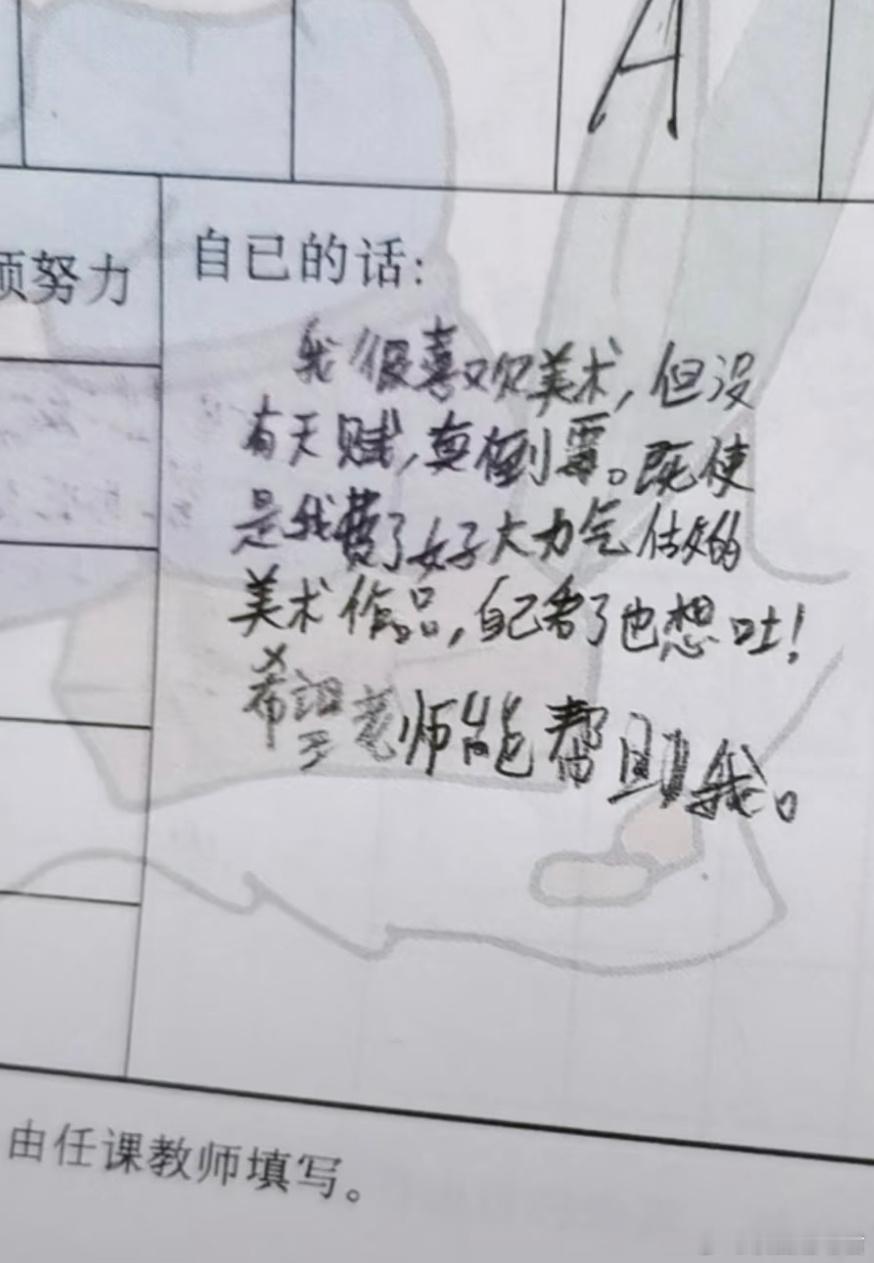 A
须努力
自已的话:
我很喜欢美术,但没
有天赋,真倒霉。既使
是我费了好大力气做的
美术作品,自己看了也想吐!
希望老师能帮助我。
由任课教师填写。